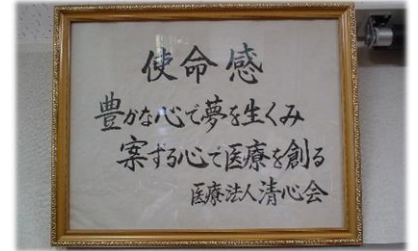 使命感
豊かな心で夢を生くみ
案ずる心で医療を創る
医療法人清心会